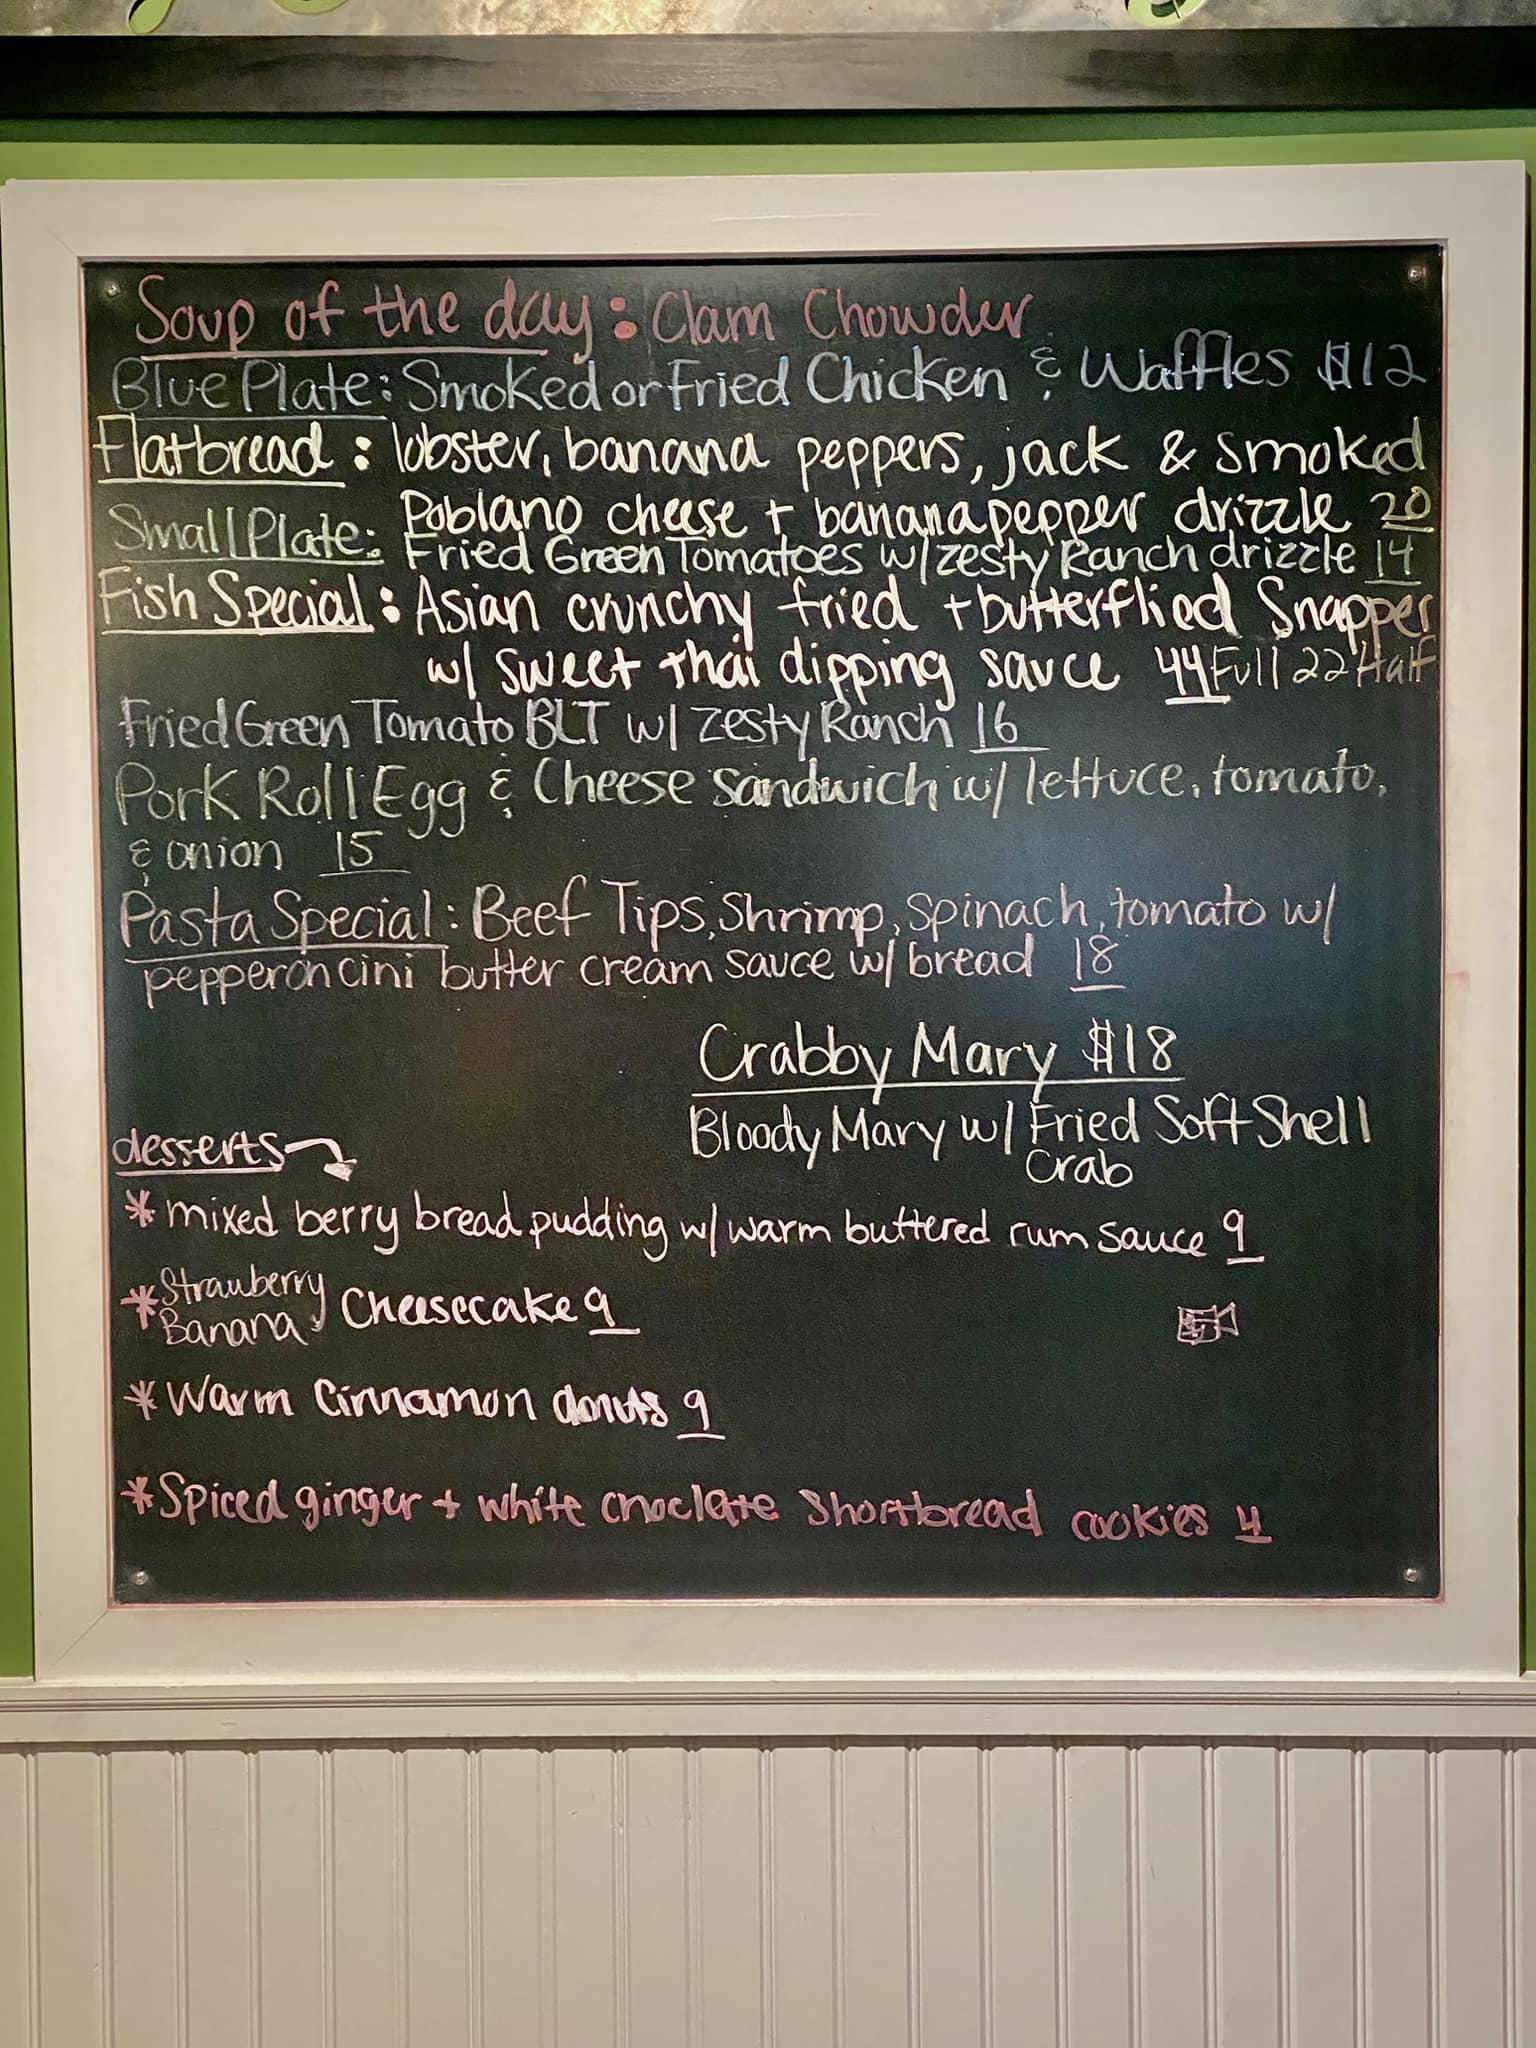 Soup of the day: Clam Chowder
Blue Plate: Smoked or Fried Chicken & Waffles $12
Flatbread: lobster, banana peppers, jack & smoked
Poblano cheese + banana pepper drizzle 20
Small Plate: Fried Green Tomatoes w/ zesty Ranch drizzle 14
Fish Special: Asian crunchy fried + butterflied Snapper
w/ sweet thai dipping sauce 44 Full 22 Half
Fried Green Tomato BLT w/ zesty Ranch 16
Pork Roll Egg & Cheese sandwich w/ lettuce, tomato,
& onion 15
Pasta Special: Beef Tips, Shrimp, spinach, tomato w/
pepperoncini butter cream sauce w/ bread 18
Crabby Mary $18
Bloody Mary w/ Fried Soft Shell
Crab
desserts
*mixed berry bread pudding w/ warm buttered rum sauce 9
*Strawberry
Banana Cheesecake 9
*Warm Cinnamon donuts 9
*Spiced ginger + white choclate shortbread cookies 4